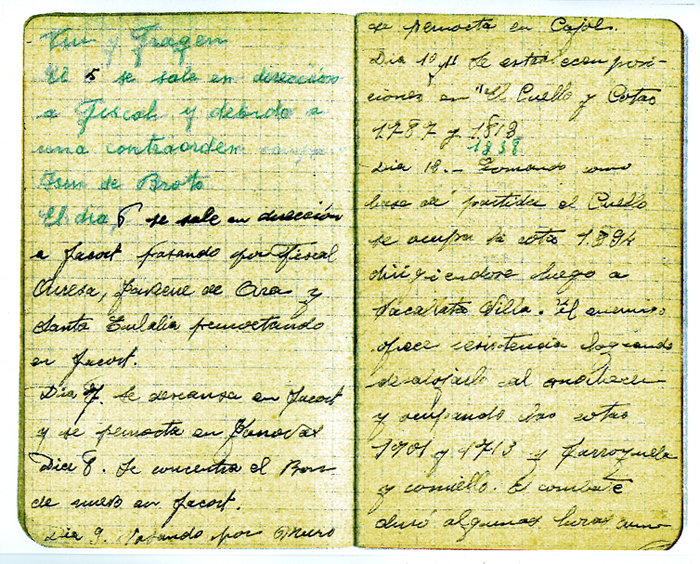 y Fragen
El 5 se sale en dirección
a Fiscal y debido a
una contraorden
de Broto
El dia 6 se sale en dirección
a Jacort pasando por Fiscal
de Ara y
Santa Eulalia pernoctando
en Jacort.
Dia 7. Se descansa en Jacort
y se pernocta en Janovas
Dice 8. Se concentra el Bon
de nuevo en Jacort.
Dia 9. Pasando por Muro
de pernocta en Cajol.
Dia 10 y 11 Se estableceen posi-
ciones en "El Cuello y Cotas
1787 y 1813
1838
Dia 18.- Tomando como
base de partida el Cuello
se ocupa la cota 1.894
dirigiendose luego a
Villa. El enemigo
ofrece resistencia logrando
desalojarlo al anochecer
y ocupando las cotas
1701 y 1713 y
y comello. El combate
duró algunas horas como